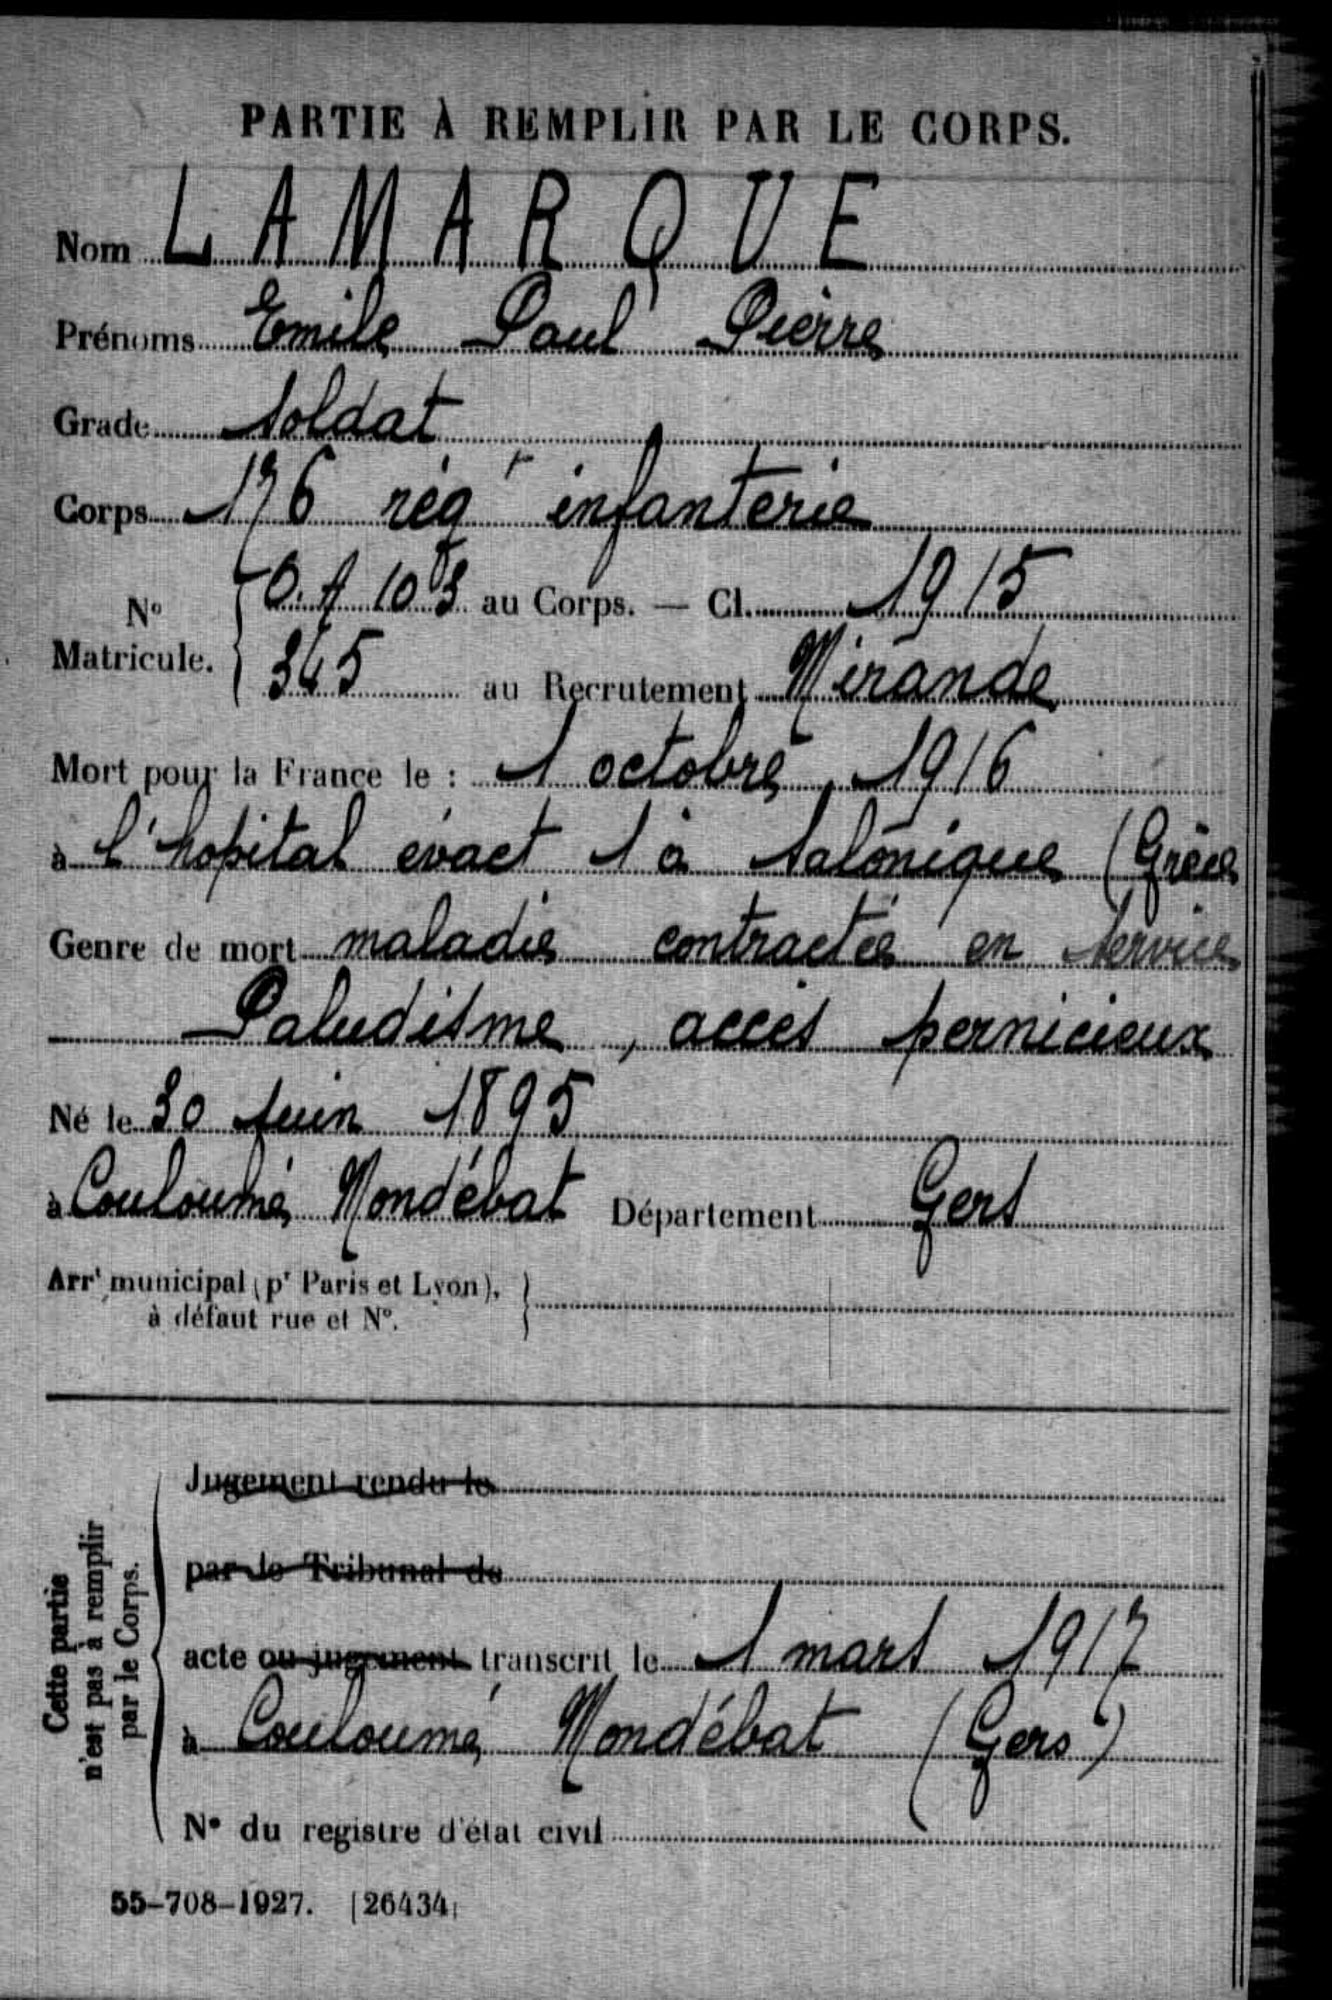 PARTIE À REMPLIR PAR LE CORPS.
Nom LAMARQUE
Prénoms Emile Paul Pierre
Grade Soldat
Corps 176 régt infanterie
No Matricule. { 103 au Corps. — Cl. 1915
345 au Recrutement Mirande
Mort pour la France le : 1 octobre 1916
à l'hopital évact 1 à Salonique (Grèce
Genre de mort maladie contractée en service
Paludisme, accès pernicieux
Né le 30 Juin 1895
à Couloumé Mondébat Département Gers
Arrt municipal (pr Paris et Lyon), }
à défaut rue et N°.
Cette partie
n'est pas à remplir
par le Corps.
Jugement rendu le
par le Tribunal de
acte ou jugement transcrit le 1 mars 1917
à Couloumé Mondébat (Gers)
N° du registre d'état civil
55-708-1927. [26434]